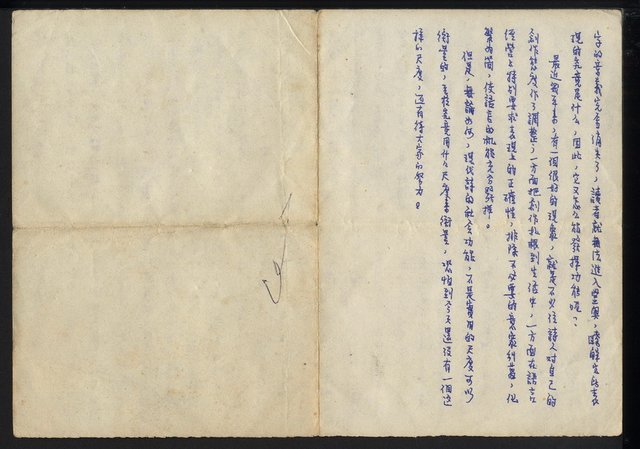 字的意義完全消失了，讀者就無法進入堂奧，瞭解它所表
現的究竟是什麼，因此，它又怎麼能發揮功能呢？
最近幾年來，有一個很好的現象，就是不少位詩人對自己的
創作態度作了調整，一方面把創作札根到生活中，一方面在語言
經營上特別要求表現上的正確性，排除不必要的意象糾葛，化
繁為簡，使語言的機能充分發揮。
但是，無論如何，現代詩的社會功能，不是實用的尺度可以
衡量的，至於究竟用什麼尺度來衡量，恐怕到今天還沒有一個這
樣的尺度，還有待大家的努力。